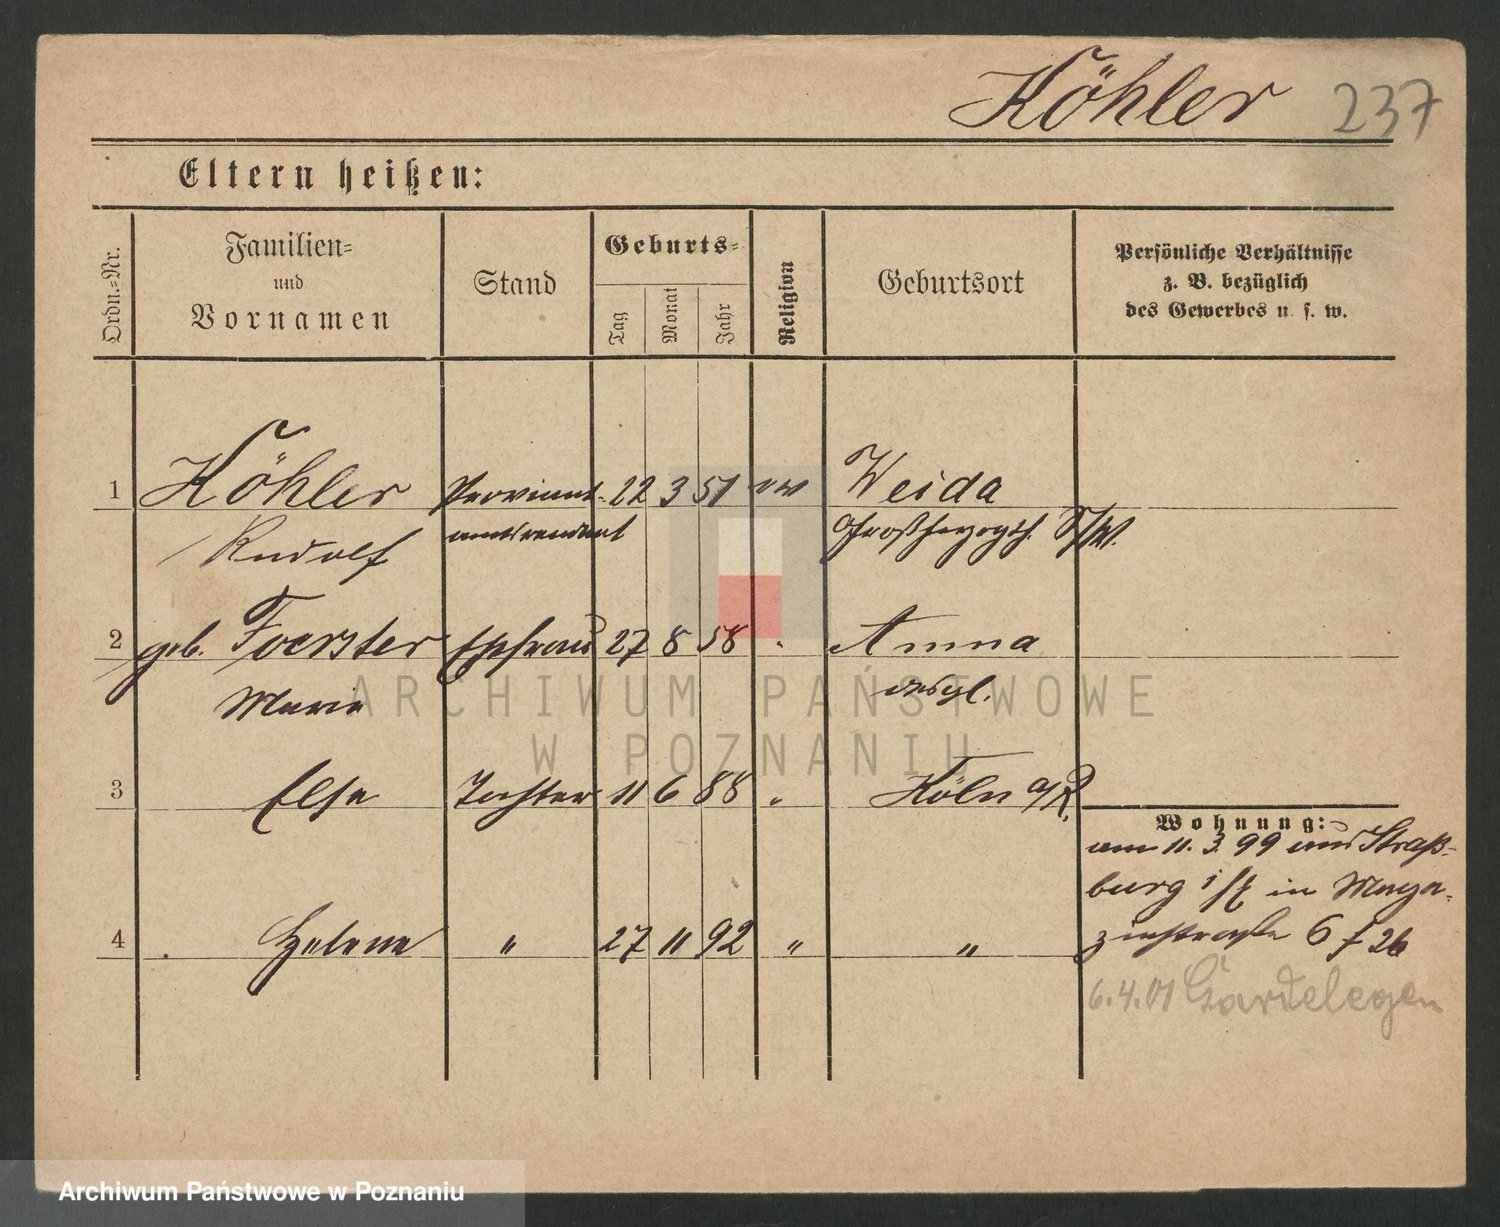 Köhler 237
Eltern heißen:
Ordn.-Nr.
Familien-
und
Vornamen
Stand
Geburts-
Tag
Monat
Jahr
Religion
Geburtsort
Persönliche Verhältnisse
z. B. bezüglich
des Gewerbes u. s. w.
1 Köhler Proviant- 22 3 51 ev Weida
Rudolf amtsrendant Großherzogth. S/W.
2 geb. Foerster Ehefrau 27 8 58 " Amma
Marie desgl.
3 Else Tochter 11 6 88 " Köln a/R.
Wohnung:
am 11. 3. 99 aus Straß-
burg i/E in Maga-
4 Helene " 27 11 92 " "
zinstraße 6 f 26
6.4.01 Gardelegen
ARCHIWUM PAŃSTWOWE
W POZNANIU
Archiwum Państwowe w Poznaniu